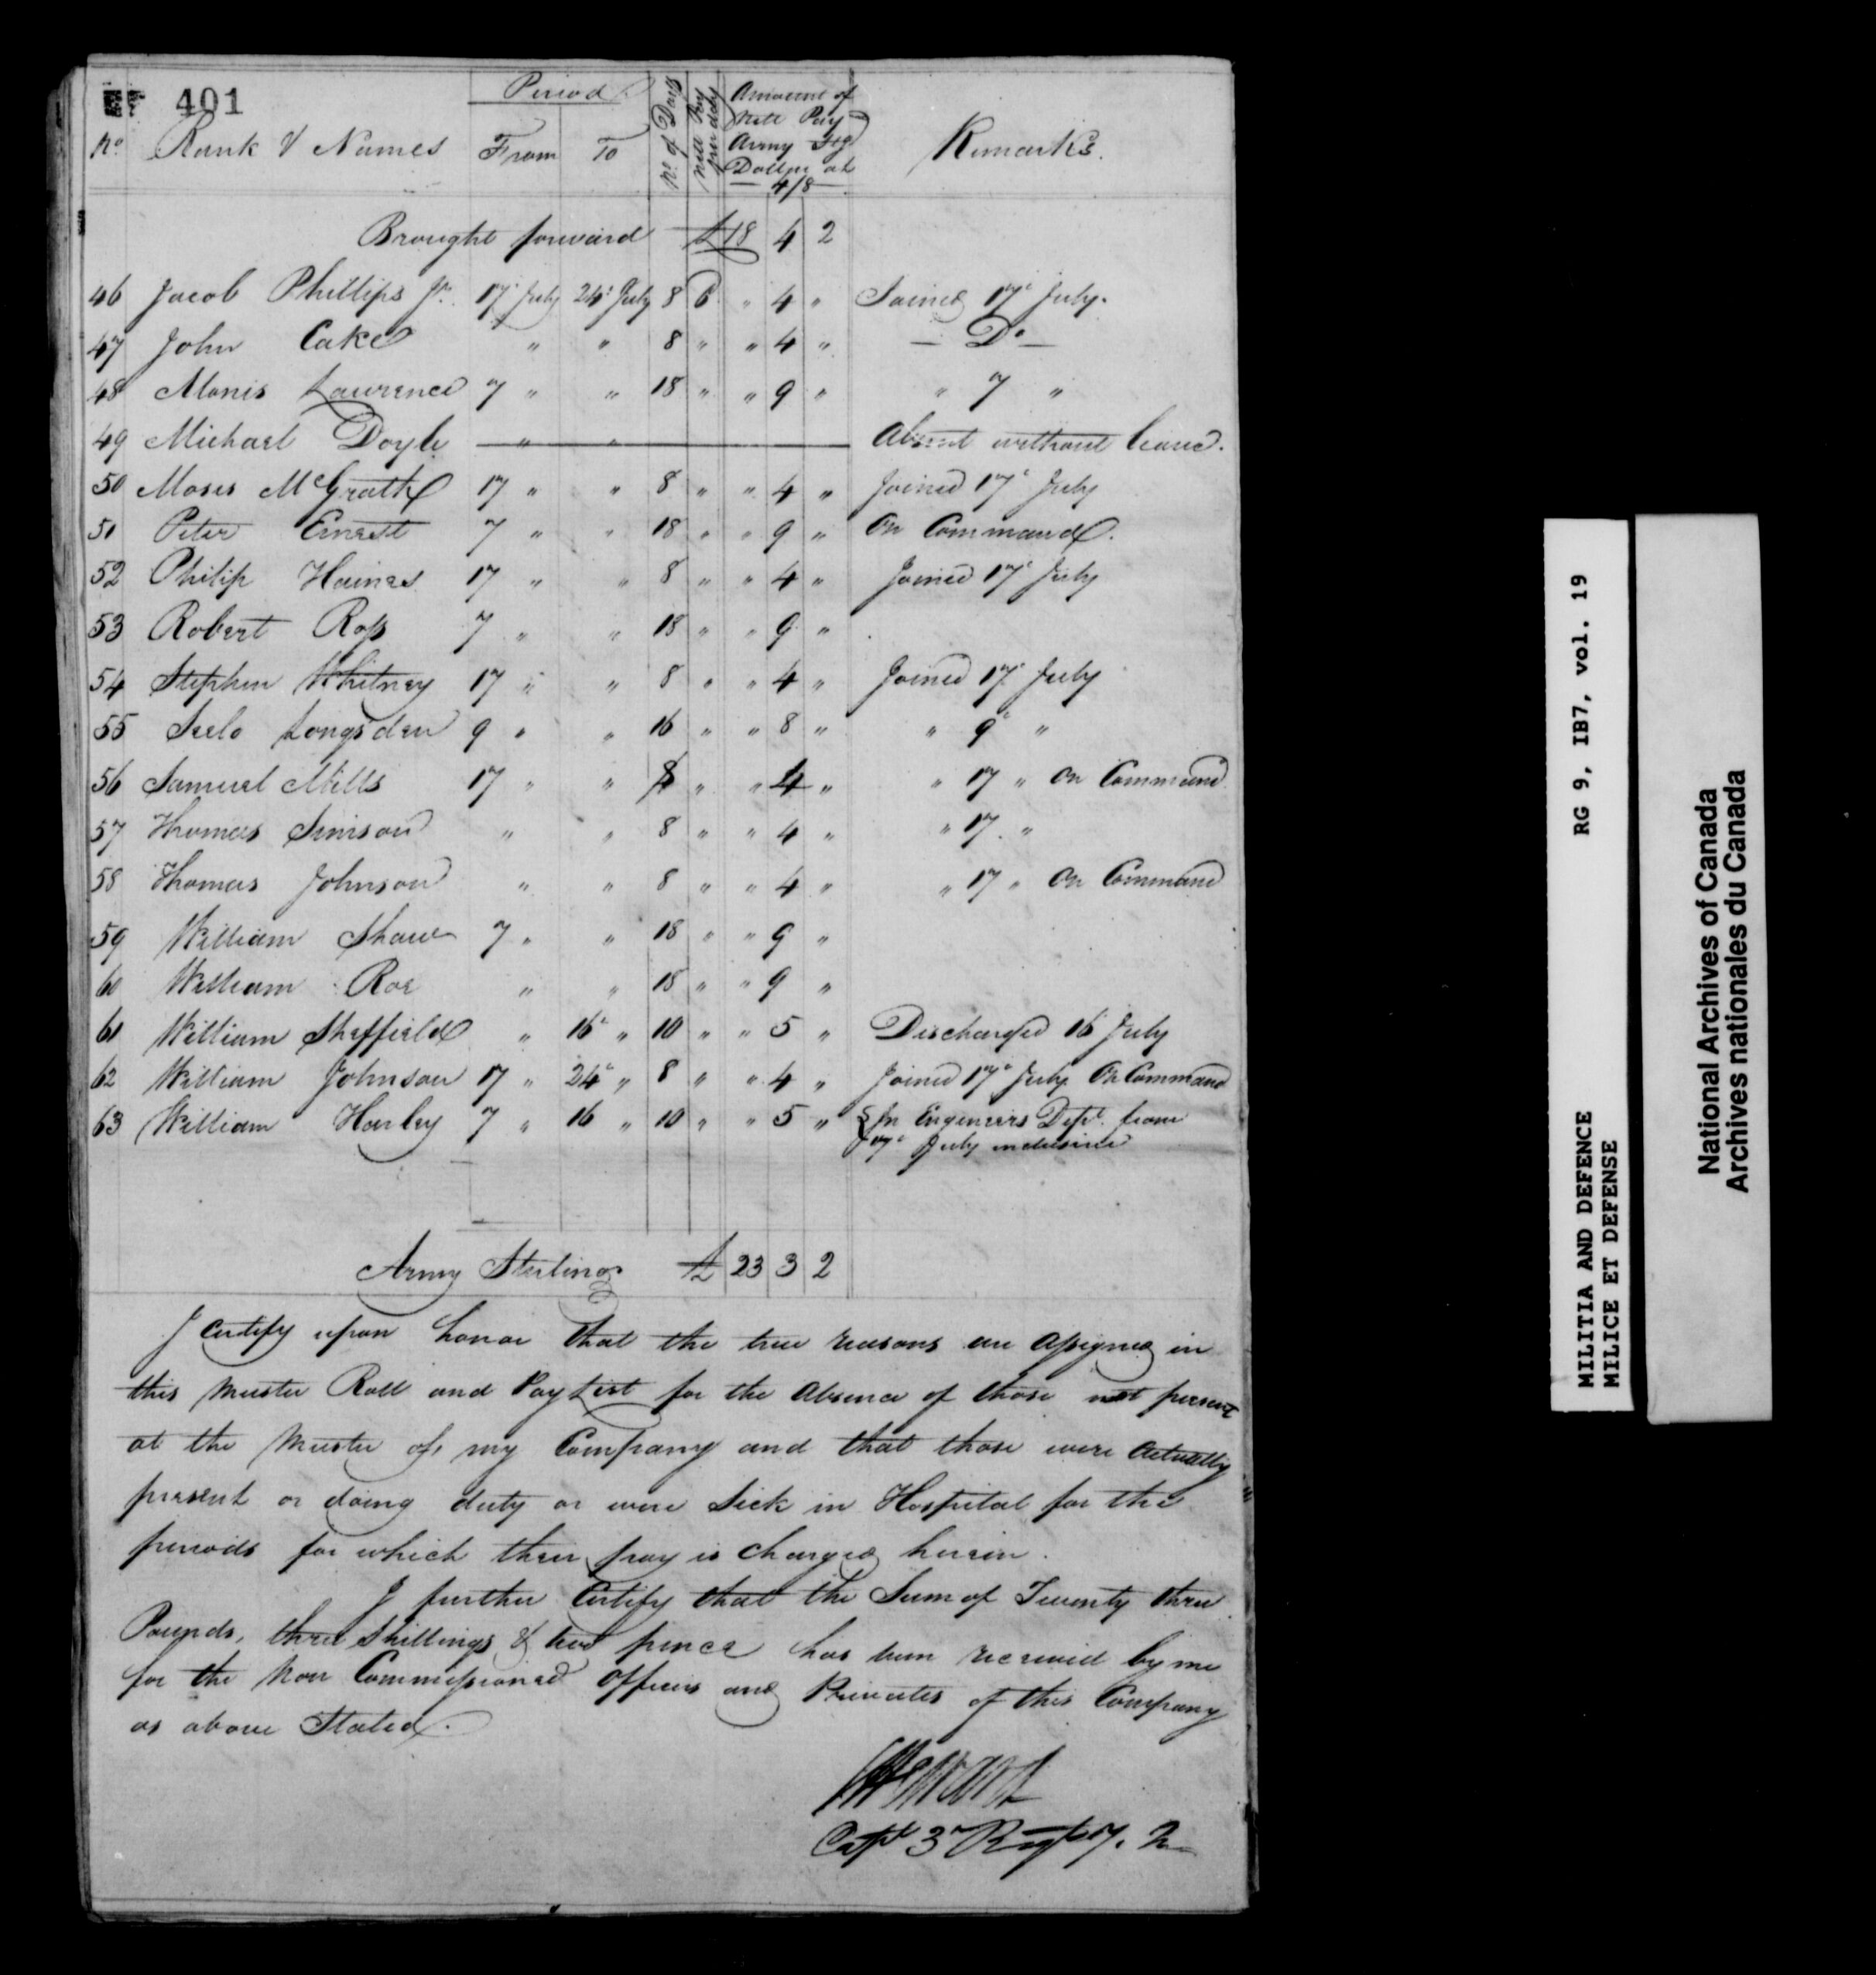 401
Period
No. Rank & Names From To No. of Days Nett Pay per day Amount of Nett Pay Army Stg Dollar at 4/8 Remarks.
Brought forward £ 18 4 2
46 Jacob Phillips Jr. 17th July 24th July 8 6 " 4 " Joined 17th July.
47 John Cake " " 8 " " 4 " — Do —
48 Monis Lawrence 7 " " 18 " " 9 " " 7 "
49 Michael Doyle " " Absent without leave.
50 Moses McGrath 17 " " 8 " " 4 " Joined 17th July
51 Peter Ernest 7 " " 18 " " 9 " On Command.
52 Philip Haines 17 " " 8 " " 4 " Joined 17th July
53 Robert Ross 7 " " 18 " " 9 "
54 Stephen Whitney 17 " " 8 " " 4 " Joined 17th July
55 Longsden 9 " " 16 " " 8 " " 9th "
56 Samuel Mills 17 " " 8 " " 4 " " 17 " On Command
57 Thomas Simson " " 8 " " 4 " " 17 "
58 Thomas Johnson " " 8 " " 4 " " 17 " On Command
59 William Shaw 7 " " 18 " " 9 "
60 William Roe " " 18 " " 9 "
61 William Sheffield " 16th " 10 " " 5 " Discharged 16 July
62 William Johnson 17 " 24th " 8 " " 4 " Joined 17th July On Command
63 William Harley 7 " 16 " 10 " " 5 " { In Engineers Dept. from
17th July inclusive
Army Sterling £ 23 3 2
I certify upon honor that the true reasons are assigned in
this Muster Roll and Pay List for the Absence of those not present
at the Muster of my Company and that those were actually
present or doing duty or were Sick in Hospital for the
periods for which their pay is charged herein.
I further Certify that the Sum of Twenty three
Pounds, three shillings & two pence has been received by me
for the Non Commissioned Officers and Privates of this Company
as above Stated.
Capt 3d Regt
MILITIA AND DEFENCE RG 9, IB7, vol. 19
MILICE ET DEFENSE
National Archives of Canada
Archives nationales du Canada